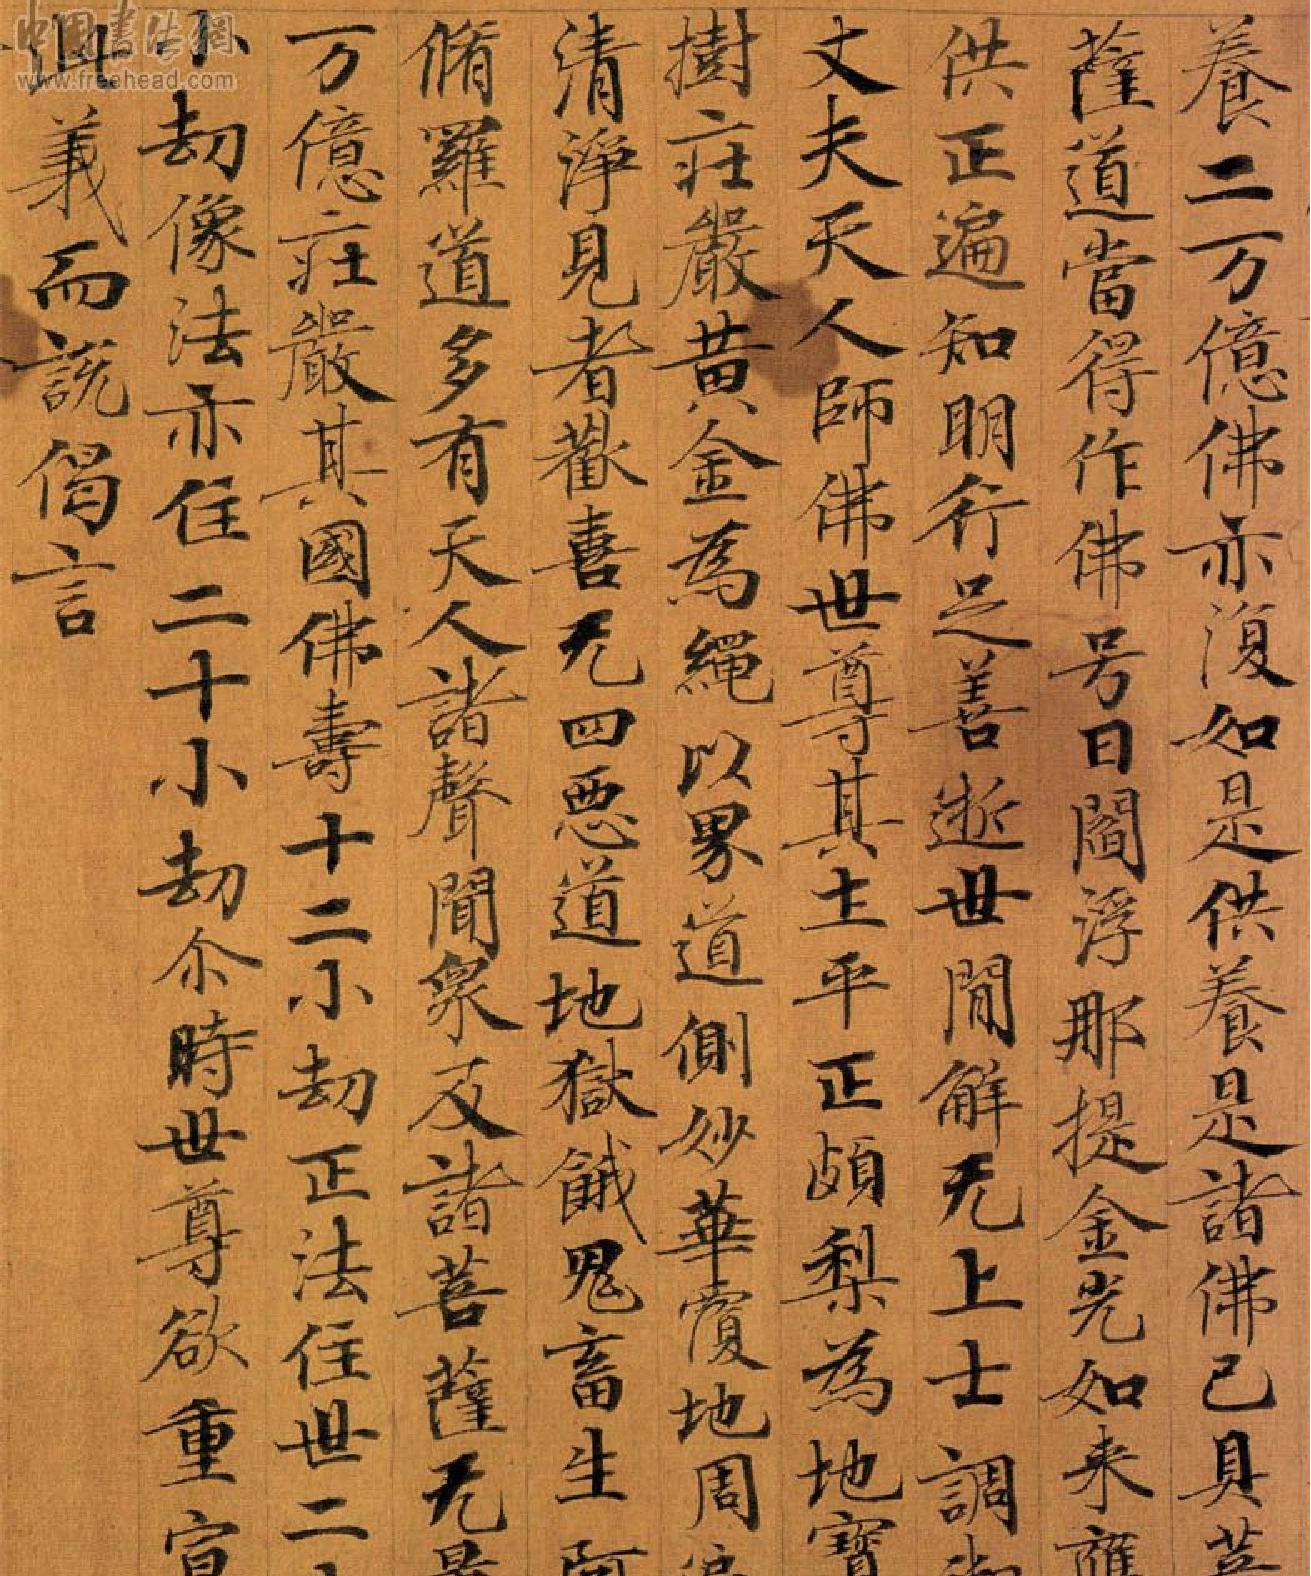 養二万億佛亦復如是供養是諸佛已具菩
薩道當得作佛号曰閻浮那提金光如来應
供正遍知明行足善逝世間解无上士調御
丈夫天人師佛世尊其土平正頗梨為地寶
樹莊嚴黃金為繩以界道側妙華覆地周遍
清淨見者歡喜无四惡道地獄餓鬼畜生阿
脩羅道多有天人諸聲聞衆及諸菩薩无量
万億莊嚴其國佛壽十二小劫正法住世二十
小劫像法亦住二十小劫尒時世尊欲重宣
此義而說偈言
中国書法網
www.freehead.com